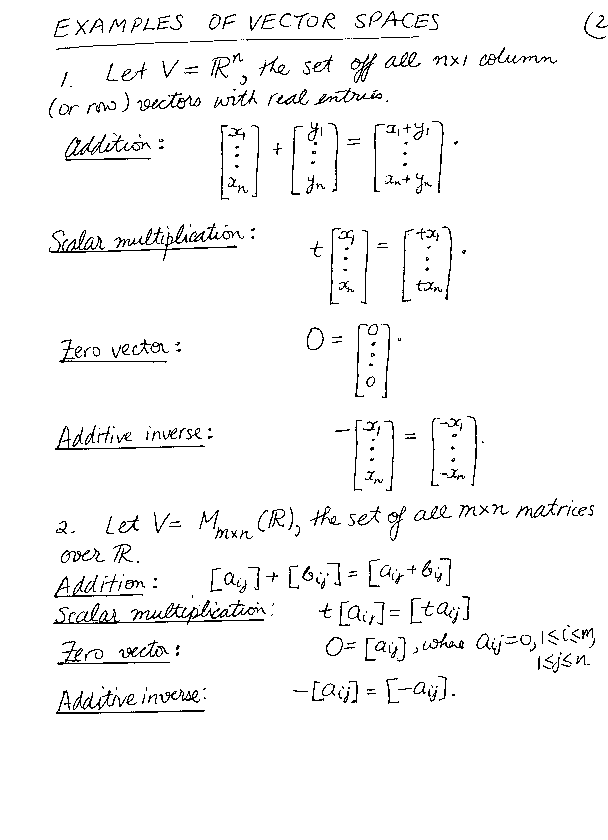 EXAMPLES OF VECTOR SPACES (2
1. Let V = ℝⁿ, the set off all n×1 column
(or row) vectors with real entries.
Addition: [x₁ ⋮ xₙ] + [y₁ ⋮ yₙ] = [x₁+y₁ ⋮ xₙ+yₙ].
Scalar multiplication: t[x₁ ⋮ xₙ] = [tx₁ ⋮ txₙ].
Zero vector: 0 = [0 ⋮ 0].
Additive inverse: -[x₁ ⋮ xₙ] = [-x₁ ⋮ -xₙ].
2. Let V = Mₘₓₙ(ℝ), the set of all m×n matrices
over ℝ.
Addition: [aᵢⱼ] + [bᵢⱼ] = [aᵢⱼ + bᵢⱼ]
Scalar multiplication: t[aᵢⱼ] = [taᵢⱼ]
Zero vector: 0 = [aᵢⱼ], where aᵢⱼ = 0, 1≤i≤m,
1≤j≤n
Additive inverse: -[aᵢⱼ] = [-aᵢⱼ].